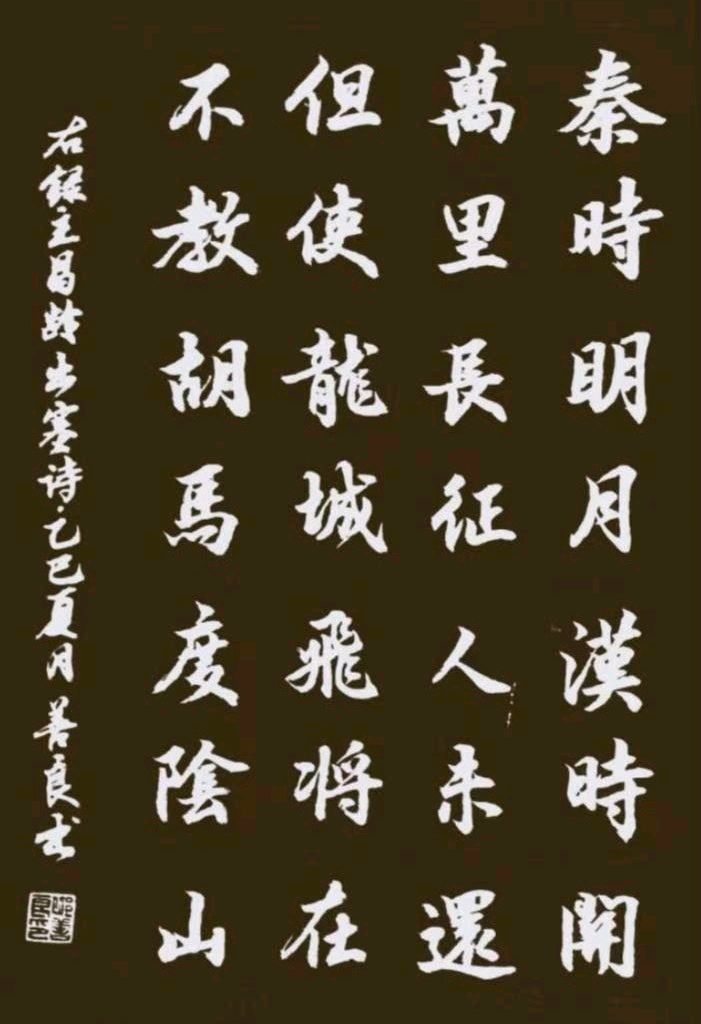 秦時明月漢時開
萬里長征人未還
但使龍城飛将在
不教胡馬度陰山
右録王昌龄出塞诗乙巳夏月善良书